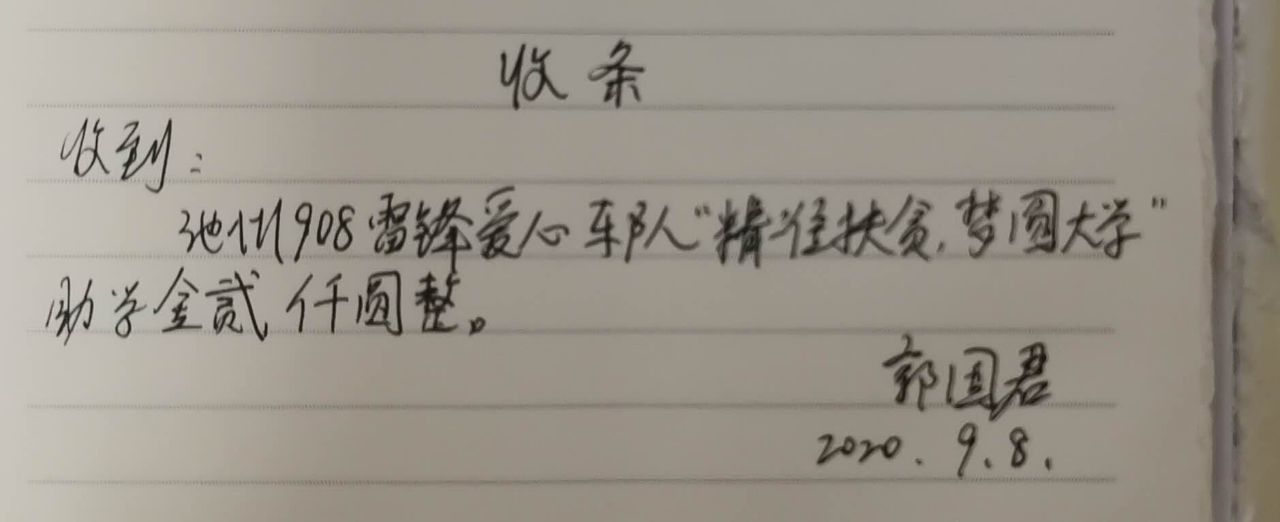 收条
收到：
池州908雷锋爱心车队“精准扶贫,梦圆大学”
助学金贰仟圆整。
郭国君
2020.9.8.